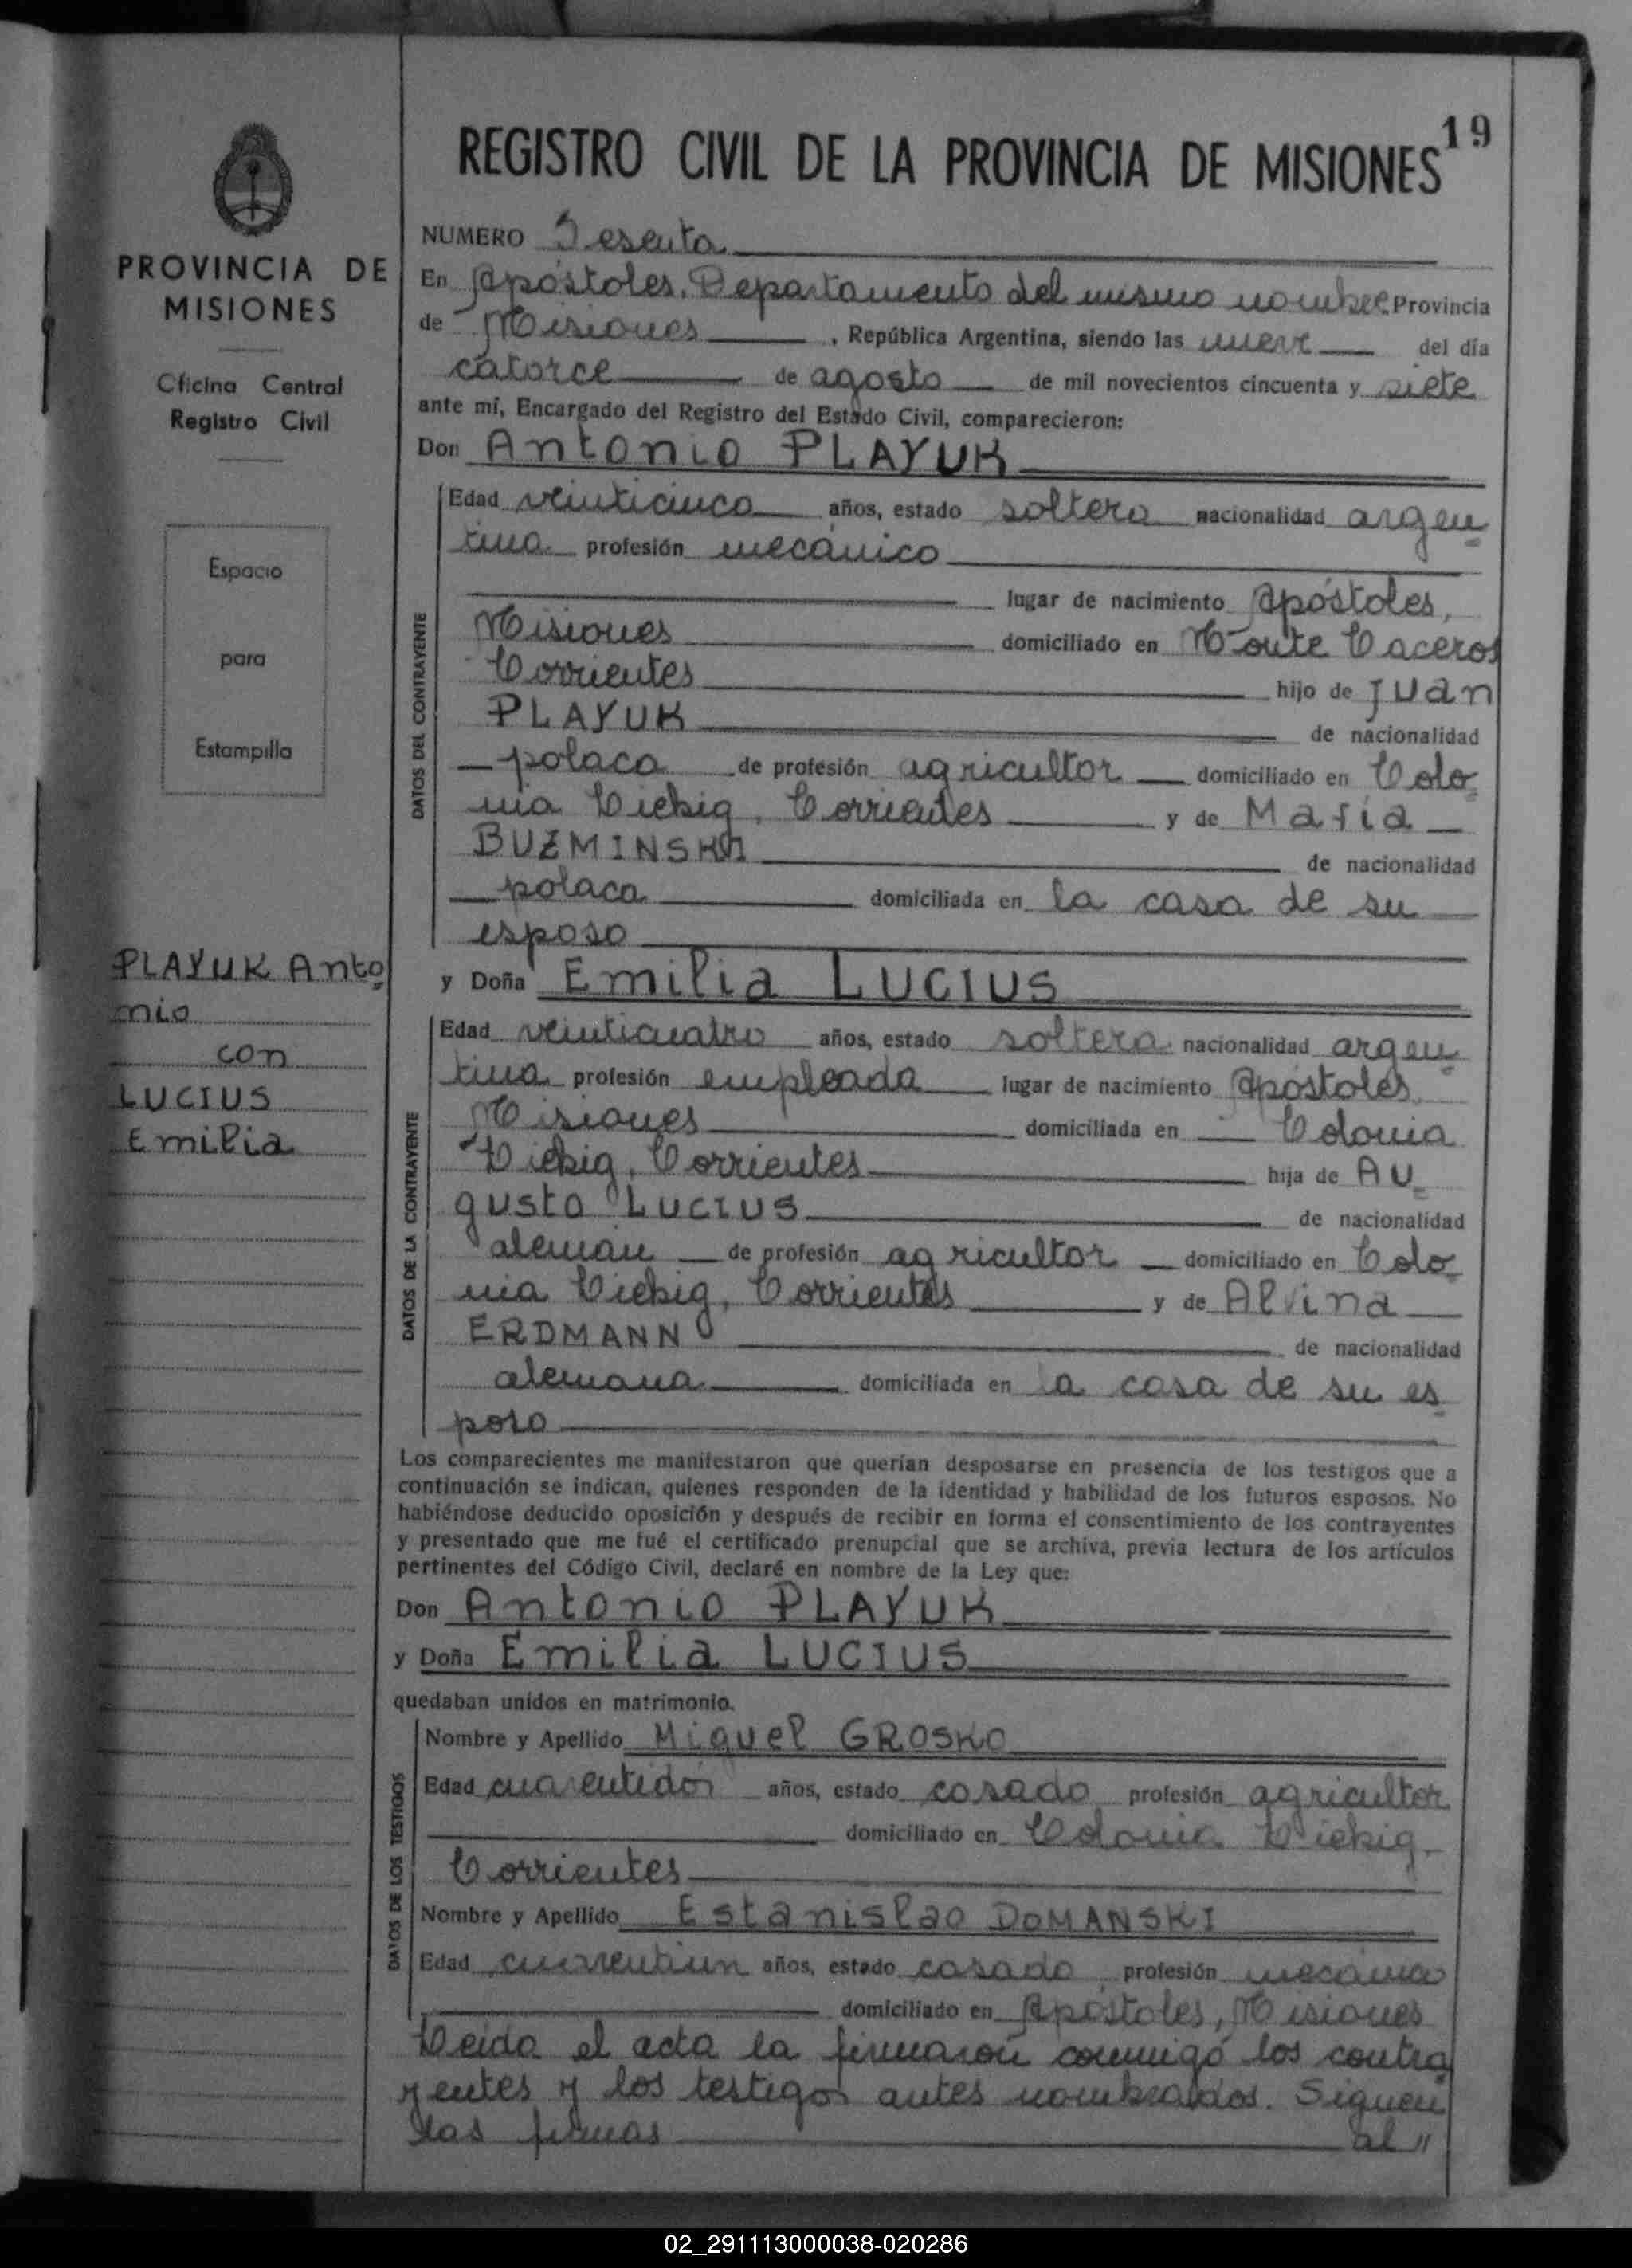 19
REGISTRO CIVIL DE LA PROVINCIA DE MISIONES
PROVINCIA DE
MISIONES
Oficina Central
Registro Civil
Espacio
para
Estampilla
PLAYUK Anto
nio
con
LUCIUS
Emilia
NUMERO Sesenta
En Apóstoles, Departamento del mismo nombre Provincia
de Misiones, República Argentina, siendo las nueve del día
catorce de agosto de mil novecientos cincuenta y siete
ante mí, Encargado del Registro del Estado Civil, comparecieron:
Don Antonio PLAYUK
DATOS DEL CONTRAYENTE
Edad veinticinco años, estado soltero nacionalidad argen
tina profesión mecánico
lugar de nacimiento Apóstoles,
Misiones domiciliado en Monte Caceros
Corrientes hijo de Juan
PLAYUK de nacionalidad
polaca de profesión agricultor domiciliado en Colo
nia Liebig, Corrientes y de María
BUZMINSKI de nacionalidad
polaca domiciliada en la casa de su
esposo
y Doña Emilia LUCIUS
DATOS DE LA CONTRAYENTE
Edad veinticuatro años, estado soltera nacionalidad argen
tina profesión empleada lugar de nacimiento Apóstoles
Misiones domiciliada en Colonia
Liebig, Corrientes hija de Au
gusto LUCIUS de nacionalidad
alemán de profesión agricultor domiciliado en Colo
nia Liebig, Corrientes y de Alvina
ERDMANN de nacionalidad
alemana domiciliada en la casa de su es
poso
Los comparecientes me manifestaron que querían desposarse en presencia de los testigos que a
continuación se indican, quienes responden de la identidad y habilidad de los futuros esposos. No
habiéndose deducido oposición y después de recibir en forma el consentimiento de los contrayentes
y presentado que me fué el certificado prenupcial que se archiva, previa lectura de los artículos
pertinentes del Código Civil, declaré en nombre de la Ley que:
Don Antonio PLAYUK
y Doña Emilia LUCIUS
quedaban unidos en matrimonio.
DATOS DE LOS TESTIGOS
Nombre y Apellido Miguel GROSKO
Edad cuarentidós años, estado casado profesión agricultor
domiciliado en Colonia Liebig,
Corrientes
Nombre y Apellido Estanislao DOMANSKI
Edad cuarentiun años, estado casado profesión mecánico
domiciliado en Apóstoles, Misiones
Leida el acta la firmaron conmigo los contra
yentes y los testigos antes nombrados. Siguen
las firmas al //
02_291113000038-020286